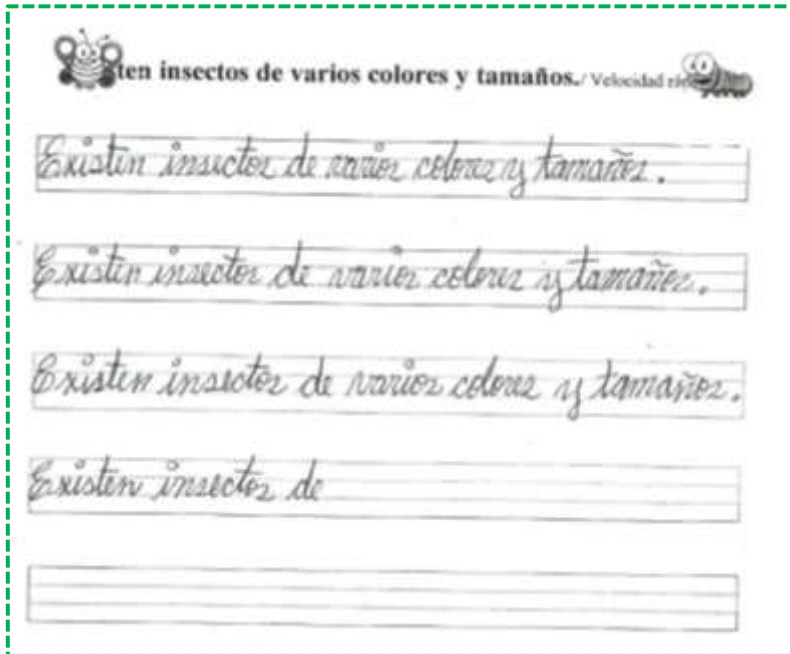 ten insectos de varios colores y tamaños./ Velocidad
Existen insectos de varios colores y tamaños.
Existen insectos de varios colores y tamaños.
Existen insectos de varios colores y tamaños.
Existen insectos de